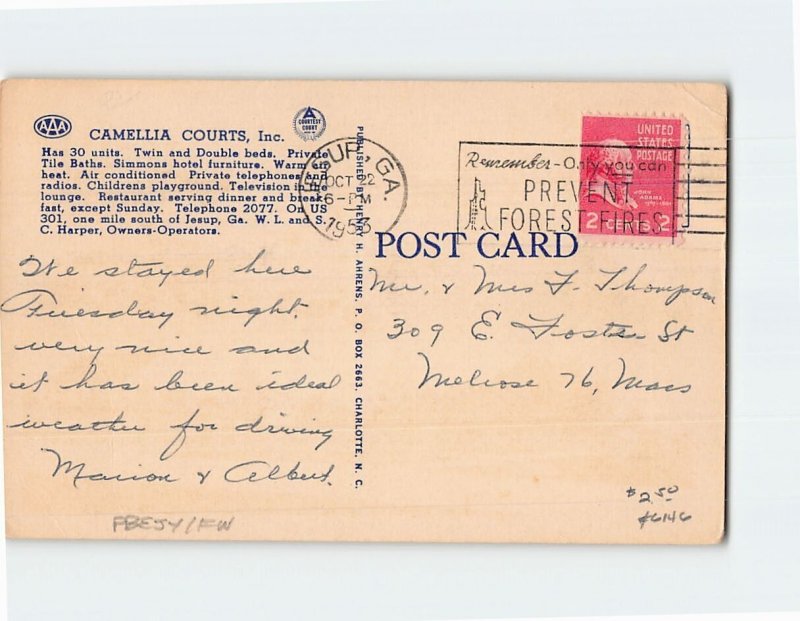 AAA
CAMELLIA COURTS, Inc.
A
COURTESY
COURT
Has 30 units. Twin and Double beds. Private
Tile Baths. Simmons hotel furniture. Warm air
heat. Air conditioned Private telephones and
radios. Childrens playground. Television in the
lounge. Restaurant serving dinner and break-
fast, except Sunday. Telephone 2077. On US
301, one mile south of Jesup, Ga. W. L. and S.
C. Harper, Owners-Operators.
We stayed here
Tuesday night.
very nice and
it has been ideal
weather for driving
Marion & Albert.
PUBLISHED BY HENRY H. AHRENS, P. O. BOX 2663, CHARLOTTE, N. C.
JESUP, GA.
OCT 22
6-PM
1953
Remember - Only you can
PREVENT
FOREST FIRES
UNITED
STATES
POSTAGE
JOHN
ADAMS
2 CENTS 2
POST CARD
Mr. & Mrs F. Thompson
309 E. Foster St
Melrose 76, Mass
$2.50
#6146